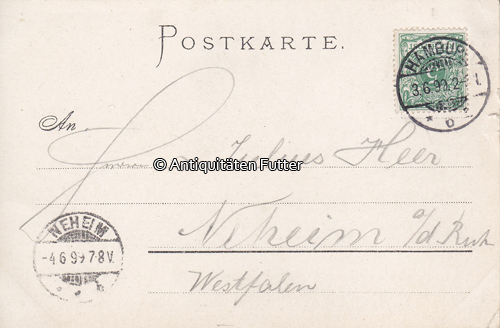 POSTKARTE.
HAMBURG
3.6.99.2-
An
Herrn Julius Heer
© Antiquitäten Futter
Neheim a/d Ruhr
Westfalen
NEHEIM
-4.6.99.7-8V